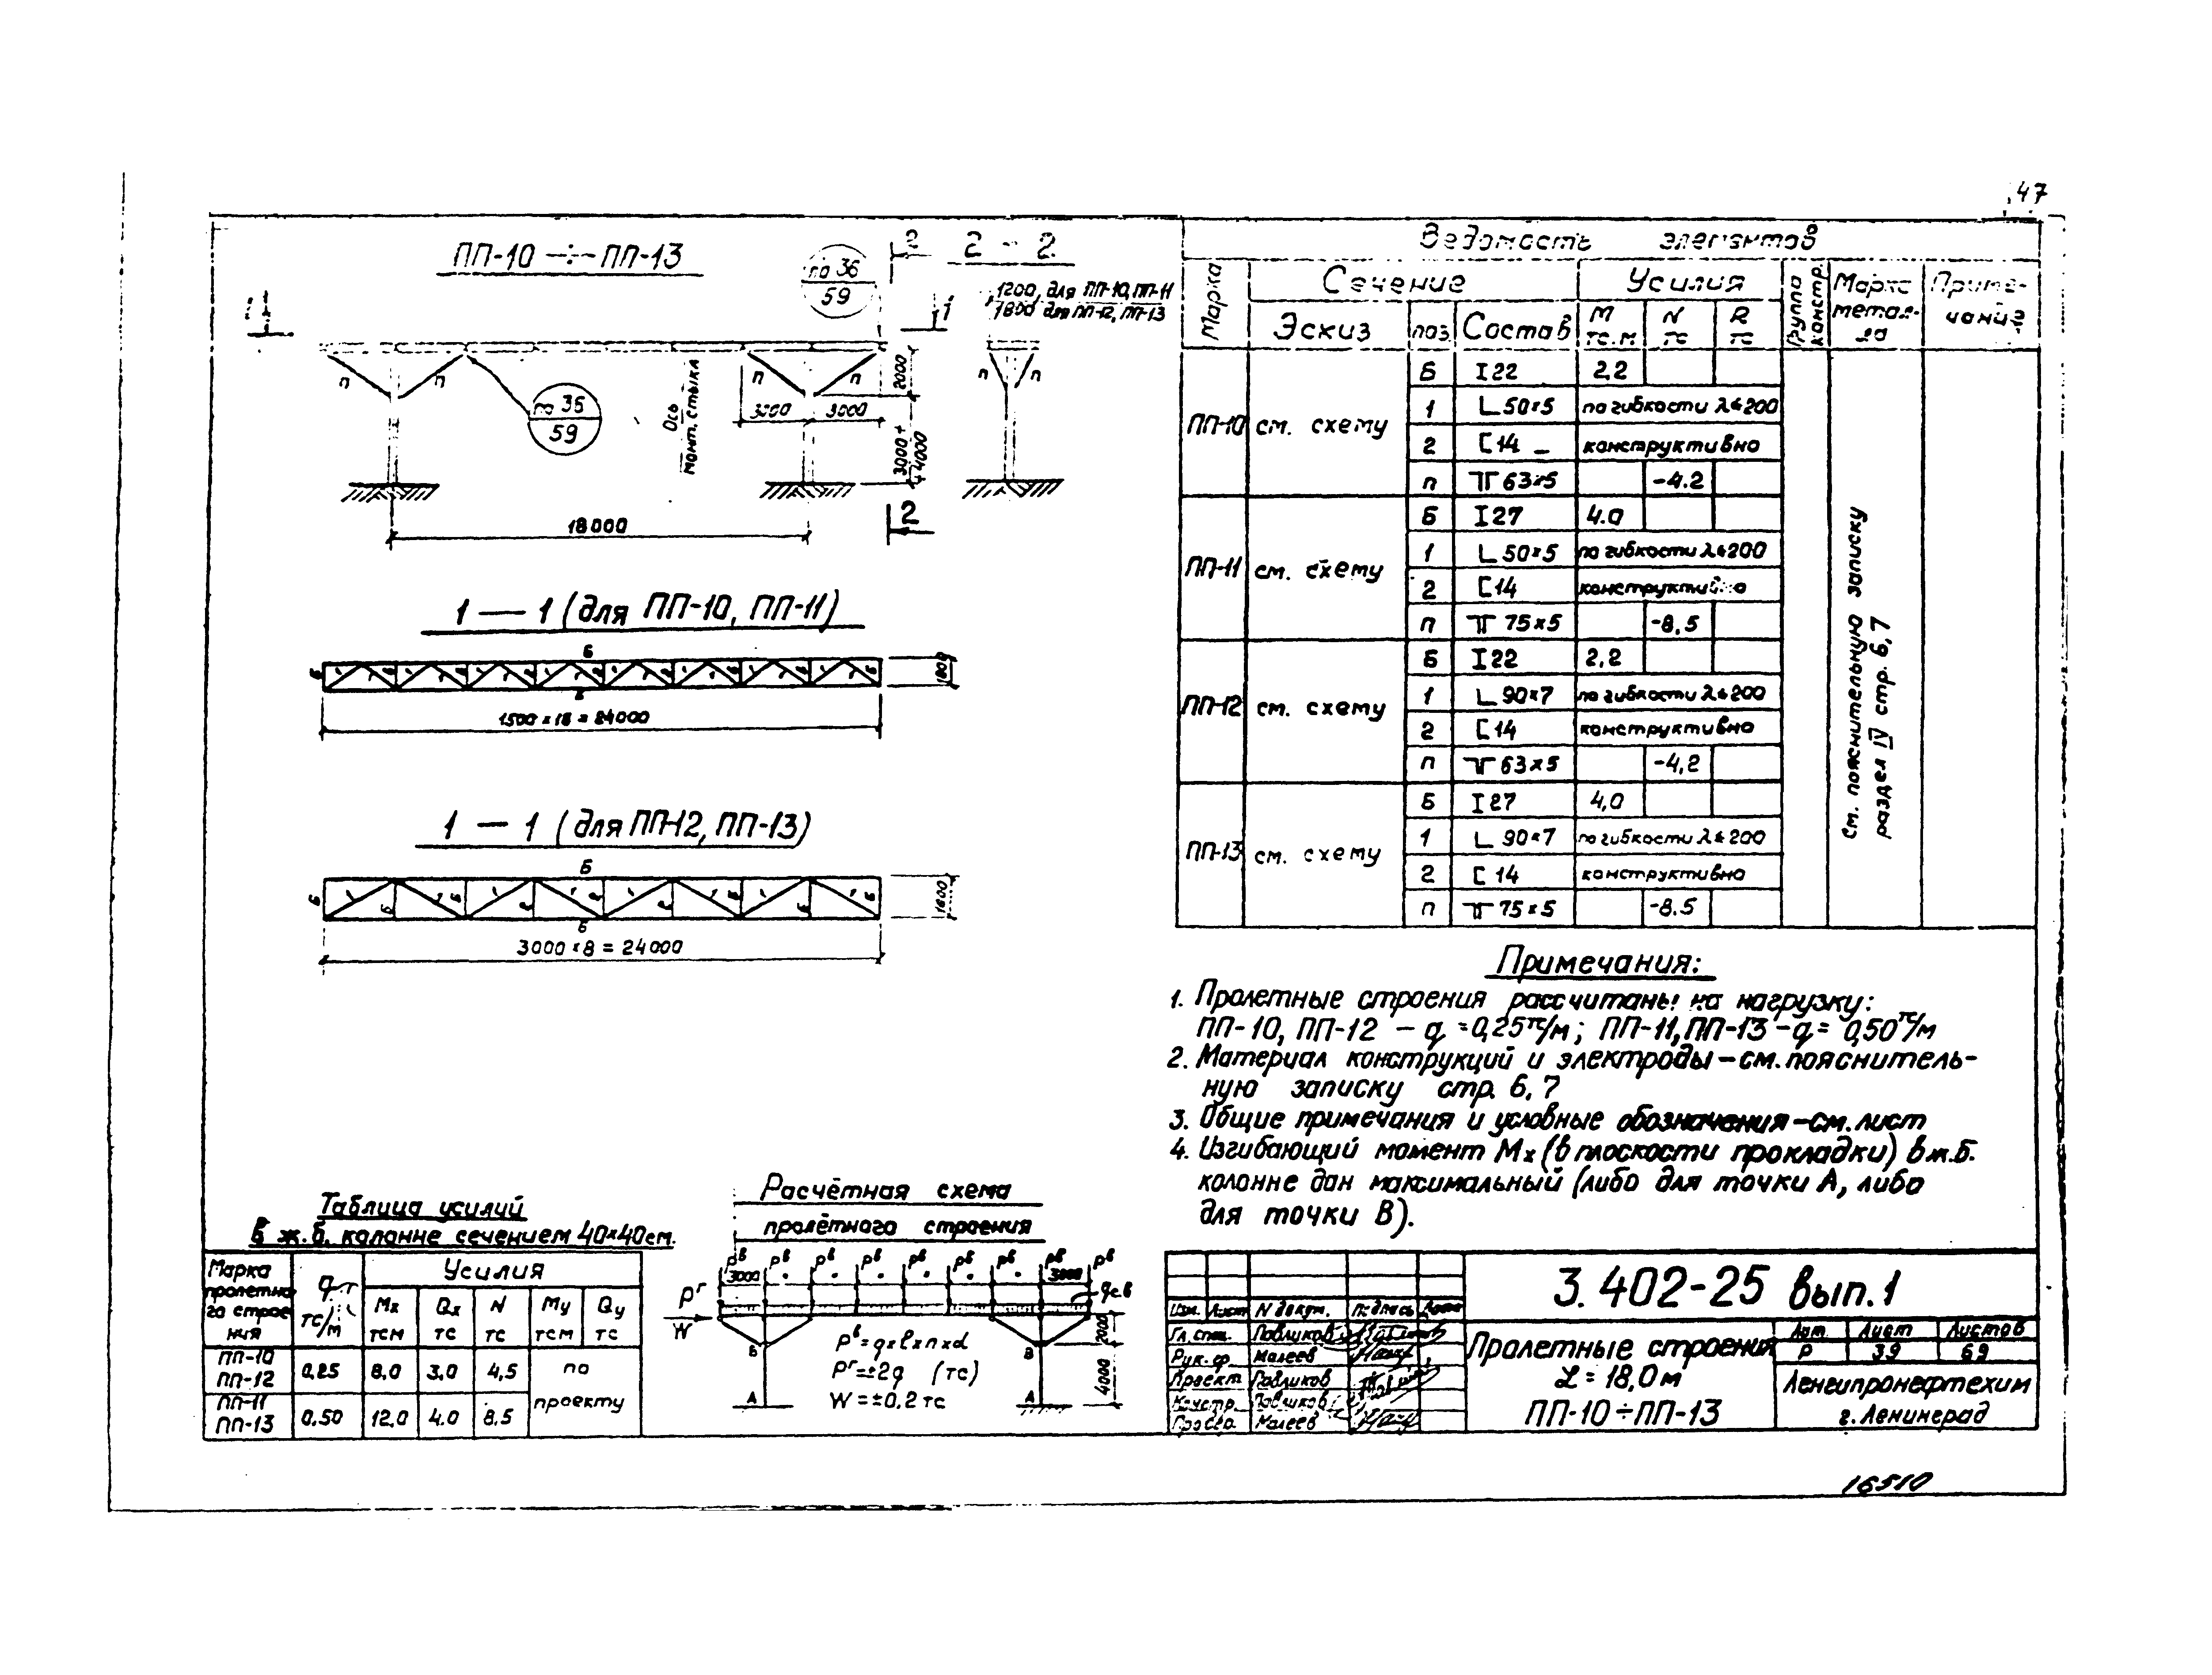 47
ПП-10 ÷ ПП-13
по 36
59
2
2 - 2
1200 для ПП-10, ПП-11
1800 для ПП-12, ПП-13
1
1
п
п
по 36
59
Ось
монт. стыка
п
п
3000
3000
2000
3000÷
4000
п
п
18000
2
1 — 1 (для ПП-10, ПП-11)
Б
Б
1800
1500 × 16 = 24000
1 — 1 (для ПП-12, ПП-13)
Б
Б
Б
1800
3000 × 8 = 24000
Ведомость элементов
Марка
Сечение
Усилия
Группа констр.
Марка метал-ла
Приме-чание
Эскиз
поз.
Состав
М тс.м
N тс
R тс
ПП-10 см. схему
Б I 22 2,2
1 ∟50×5 по гибкости λ≤200
2 [14 конструктивно
п ╥ 63×5 -4.2
ПП-11 см. схему
Б I 27 4.0
1 ∟50×5 по гибкости λ≤200
2 [14 конструктивно
п ╥ 75×5 -8,5
ПП-12 см. схему
Б I 22 2,2
1 ∟90×7 по гибкости λ≤200
2 [14 конструктивно
п ╥ 63×5 -4,2
ПП-13 см. схему
Б I 27 4,0
1 ∟90×7 по гибкости λ≤200
2 [14 конструктивно
п ╥ 75×5 -8.5
см. пояснительную записку
раздел IV стр. 6,7
Примечания:
1. Пролетные строения рассчитаны на нагрузку:
ПП-10, ПП-12 - q = 0,25 тс/м; ПП-11, ПП-13 - q = 0,50 тс/м
2. Материал конструкций и электроды - см. пояснитель-
ную записку стр. 6, 7
3. Общие примечания и условные обозначения - см. лист
4. Изгибающий момент Мх (в плоскости прокладки) в ж.б.
колонне дан максимальный (либо для точки А, либо
для точки В).
Таблица усилий
в ж.б. колонне сечением 40×40см.
Марка
пролетно-
го строе-
ния
q
тс/м
Усилия
Мх
тсм
Qх
тс
N
тс
Му
тсм
Qу
тс
ПП-10
ПП-12 0,25 8,0 3,0 4,5
ПП-11
ПП-13 0,50 12,0 4.0 8,5
по
проекту
Расчётная схема
пролётного строения
Рв Рв Рв Рв Рв Рв Рв Рв Рв
3000
3000
Рг
W
qс.в
Б
В
А
А
2000
4000
Рв = q×ℓ×n×α
Рг = ±2q (тс)
W = ±0.2 тс
Изм. Лист N докум. Подпись Дата
Гл. спец. Павликов
Рук. гр. Малеев
Проект. Павликов
Констр. Павликов
Провер. Малеев
3.402-25 вып.1
Пролетные строения
L = 18,0 м
ПП-10÷ПП-13
Лит Лист Листов
Р 39 69
Ленгипронефтехим
г. Ленинград
16510